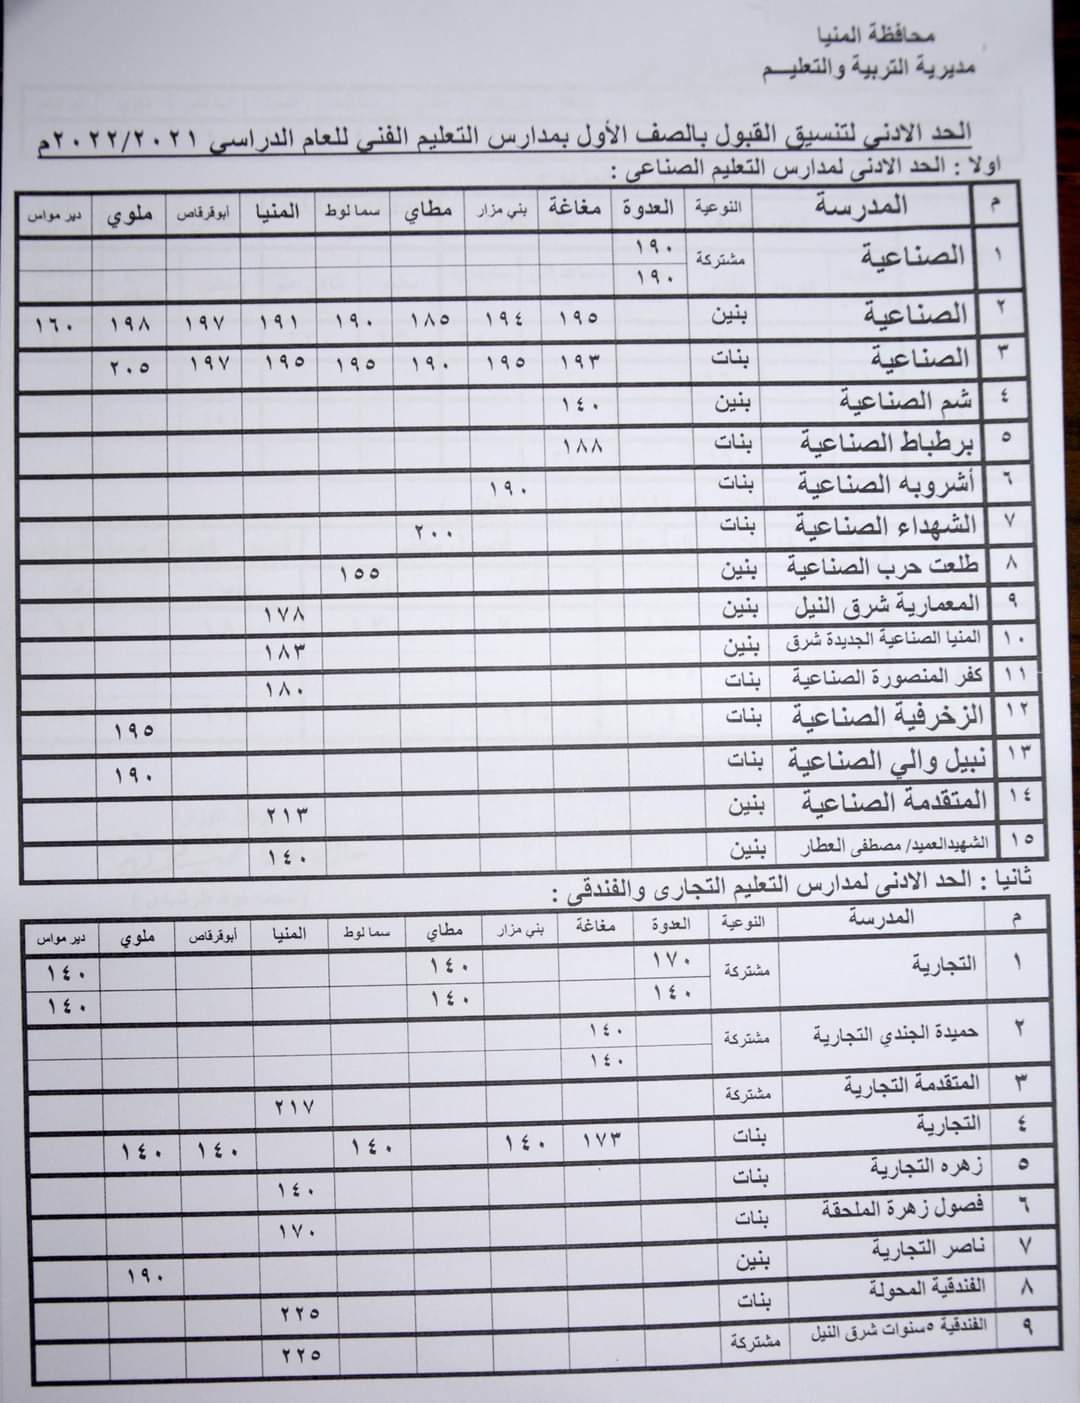 محافظة المنيا
مديرية التربية والتعليــم
الحد الادنى لتنسيق القبول بالصف الأول بمدارس التعليم الفني للعام الدراسي ٢٠٢٢/٢٠٢١م
اولا : الحد الادنى لمدارس التعليم الصناعى :
م المدرسة النوعية العدوة مغاغة بني مزار مطاي سمالوط المنيا أبوقرقاص ملوي دير مواس
١ الصناعية مشتركة ١٩٠
١٩٠
٢ الصناعية بنين ١٩٥ ١٩٤ ١٨٥ ١٩٠ ١٩١ ١٩٧ ١٩٨ ١٦٠
٣ الصناعية بنات ١٩٣ ١٩٥ ١٩٠ ١٩٥ ١٩٥ ١٩٧ ٢٠٥
٤ شم الصناعية بنين ١٤٠
٥ برطباط الصناعية بنات ١٨٨
٦ أشروبه الصناعية بنات ١٩٠
٧ الشهداء الصناعية بنات ٢٠٠
٨ طلعت حرب الصناعية بنين ١٥٥
٩ المعمارية شرق النيل بنين ١٧٨
١٠ المنيا الصناعية الجديدة شرق بنين ١٨٣
١١ كفر المنصورة الصناعية بنات ١٨٠
١٢ الزخرفية الصناعية بنات ١٩٥
١٣ نبيل والي الصناعية بنات ١٩٠
١٤ المتقدمة الصناعية بنين ٢١٣
١٥ الشهيدالعميد/ مصطفى العطار بنين ١٤٠
ثانيا : الحد الادنى لمدارس التعليم التجارى والفندقى :
م المدرسة النوعية العدوة مغاغة بني مزار مطاي سمالوط المنيا أبوقرقاص ملوي دير مواس
١ التجارية مشتركة ١٧٠ ١٤٠ ١٤٠
١٤٠ ١٤٠ ١٤٠
٢ حميدة الجندي التجارية مشتركة ١٤٠
١٤٠
٣ المتقدمة التجارية مشتركة ٢١٧
٤ التجارية بنات ١٧٣ ١٤٠ ١٤٠ ١٤٠ ١٤٠
٥ زهره التجارية بنات ١٤٠
٦ فصول زهرة الملحقة بنات ١٧٠
٧ ناصر التجارية بنين ١٩٠
٨ الفندقية المحولة بنات ٢٢٥
٩ الفندقية ٥سنوات شرق النيل مشتركة ٢٢٥